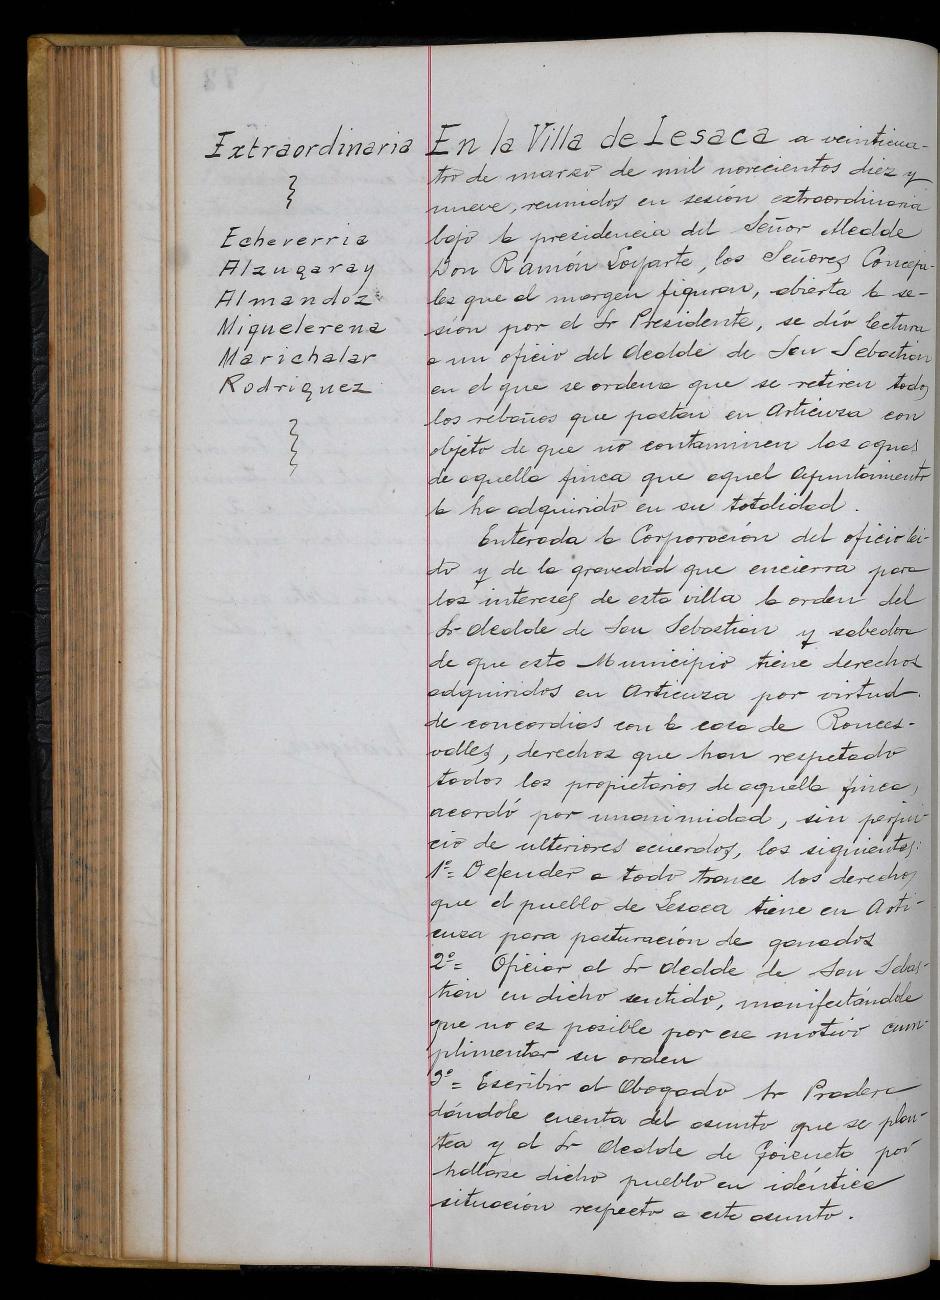 Extraordinaria
Echeverria
Alzugaray
Almandoz
Miguelerena
Marichalar
Rodriguez
En la Villa de Lesaca a veinticua-
tro de marzo de mil novecientos diez y
nueve, reunidos en sesión extraordinaria
bajo la presidencia del Señor Alcalde
Don Ramón Loyarte, los Señores Conceja-
les que al margen figuran, abierta la se-
sion por el Sr Presidente, se dio lectura
a un oficio del Alcalde de San Sebastian
en el que se ordena que se retiren todos
los rebaños que pastan en Articuza con
objeto de que no contaminen las aguas
de aquella finca que aquel Ayuntamiento
la ha adquirido en su totalidad.
Enterada la Corporación del oficio lei-
do y de la gravedad que encierra para
los intereses de esta villa la orden del
Sr Alcalde de San Sebastian y sabedora
de que este Municipio tiene derechos
adquiridos en Articuza por virtud
de concordias con la casa de Ronces-
valles, derechos que han respetado
todos los propietarios de aquella finca,
acordó por unanimidad, sin perjui-
cio de ulteriores acuerdos, los siguientes:
1º= Defender a todo trance los derechos
que el pueblo de Lesaca tiene en Arti-
cuza para pasturación de ganados
2º= Oficiar al Sr Alcalde de San Sebas-
tian en dicho sentido, manifestándole
que no es posible por ese motivo cum-
plimentar su orden
3º= Escribir al Abogado Sr Pradera
dándole cuenta del asunto que se plan-
tea y al Sr Alcalde de Goizueta por
hallarse dicho pueblo en idéntica
situación respecto a este asunto.